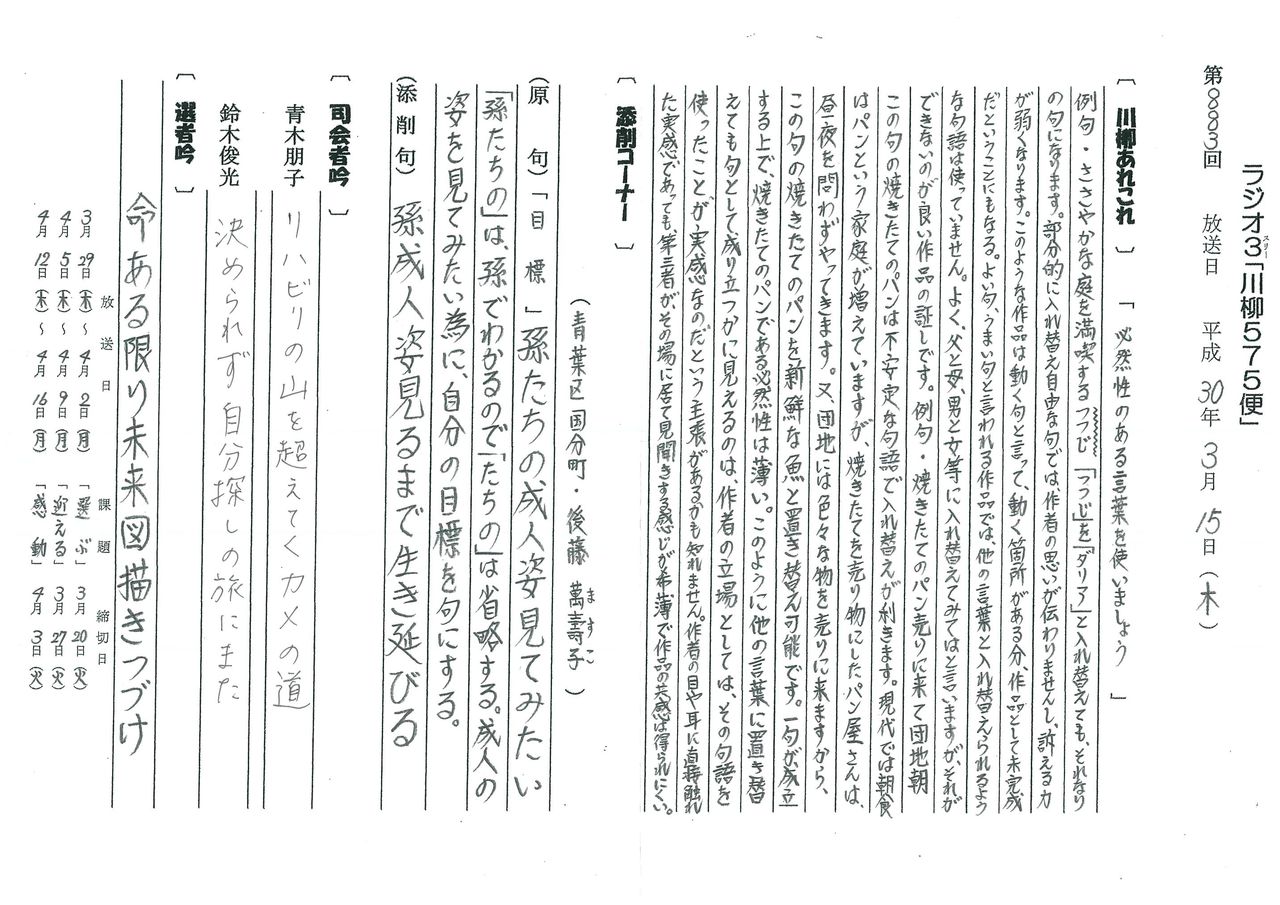 ラジオ3「川柳575便」
スリー
第883回 放送日 平成30年3月15日(木)
〔川柳あれこれ〕 「必然性のある言葉を使いましょう」
例句・ささやかな庭を満喫するつつじ 「つつじ」を「ダリア」と入れ替えても、それなり
の句になります。部分的に入れ替え自由な句では作者の思いが伝わりませんし、訴える力
が弱くなります。このような作品は動く句と言って、動く箇所がある分、作品として未完成
だということにもなる。よい句、うまい句と言われる作品では、他の言葉と入れ替えられるよう
な句語は使っていません。よく、父と母、男と女等に入れ替えてみてはと言いますが、それが
できないのが良い作品の証しです。例句・焼きたてのパン売りに来て団地朝
この句の焼きたてのパンは不安定な句語で入れ替えが利きます。現代では朝食
はパンという家庭が増えていますが、焼きたてを売り物にしたパン屋さんは、
昼夜を問わずやってきます。又、団地には色々な物を売りに来ますから、
この句の焼きたてのパンを新鮮な魚と置き替え可能です。一句が成立
する上で、焼きたてのパンである必然性は薄い。このように他の言葉に置き替
えても句として成り立つかに見えるのは、作者の立場としては、その句語を
使ったことが、実感なのだという主張があるかも知れません。作者の目や耳に直接触れ
た実感であっても、第三者が、その場に居て見聞きする感じが希薄で作品の共感は得られにくい。
〔添削コーナー〕
(青葉区国分町・後藤 萬壽子)
ますこ
(原 句)「目 標」孫たちの成人姿見てみたい
「孫たちの」は、孫でわかるので「たちの」は省略する。成人の
姿を見てみたい為に、自分の目標を句にする。
(添削句) 孫成人姿見るまで生き延びる
〔司会者吟〕
青木朋子 リハビリの山を超えてくカメの道
鈴木俊光 決められず自分探しの旅にまた
〔選者吟〕
命ある限り未来図描きつづけ
放送日 課題 締切日
3月29日(木)～4月2日(月) 「選ぶ」 3月20日(火)
4月5日(木)～4月9日(月) 「迎える」 3月27日(火)
4月12日(木)～4月16日(月) 「感動」 4月3日(火)